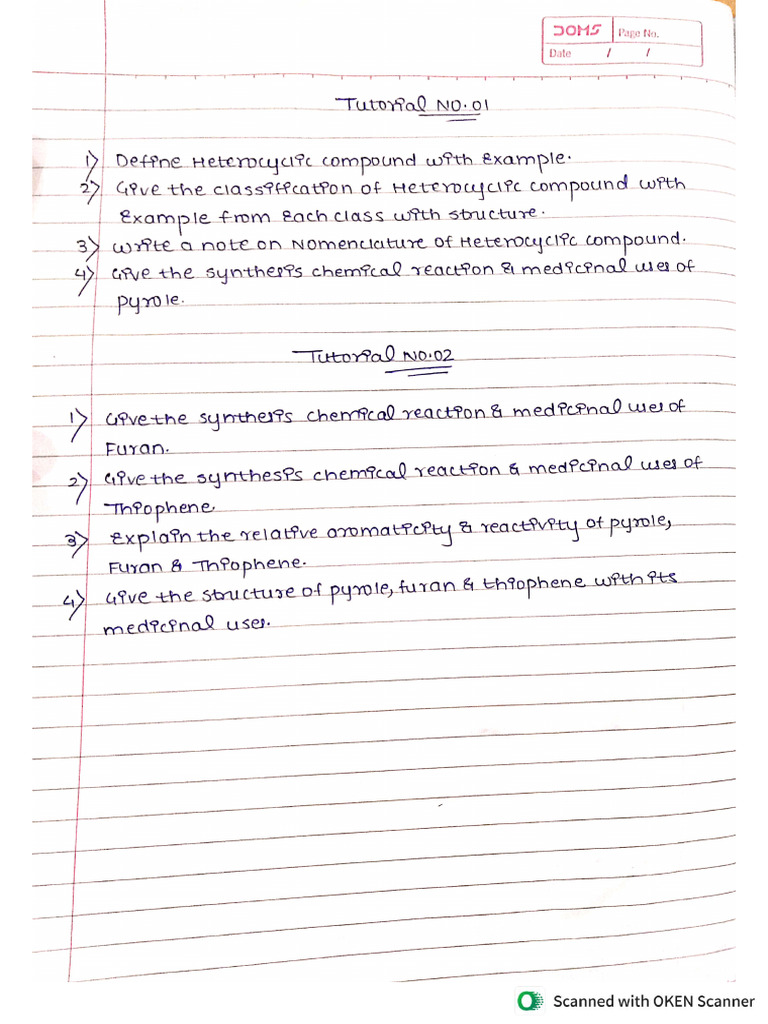 DOMS Page No.
Date / /
Tutorial NO.01
1) Define Heterocyclic compound with Example.
2) Give the classification of Heterocyclic compound with
Example from Each class with structure.
3) Write a note on Nomenclature of Heterocyclic compound.
4) Give the synthesis chemical reaction & medicinal uses of
pyrole.
Tutorial NO.02
1) Give the synthesis chemical reaction & medicinal uses of
Furan.
2) Give the synthesis chemical reaction & medicinal uses of
Thiophene
3) Explain the relative aromaticity & reactivity of pyrole,
Furan & Thiophene.
4) Give the structure of pyrole, furan & thiophene with its
medicinal uses.
Scanned with OKEN Scanner